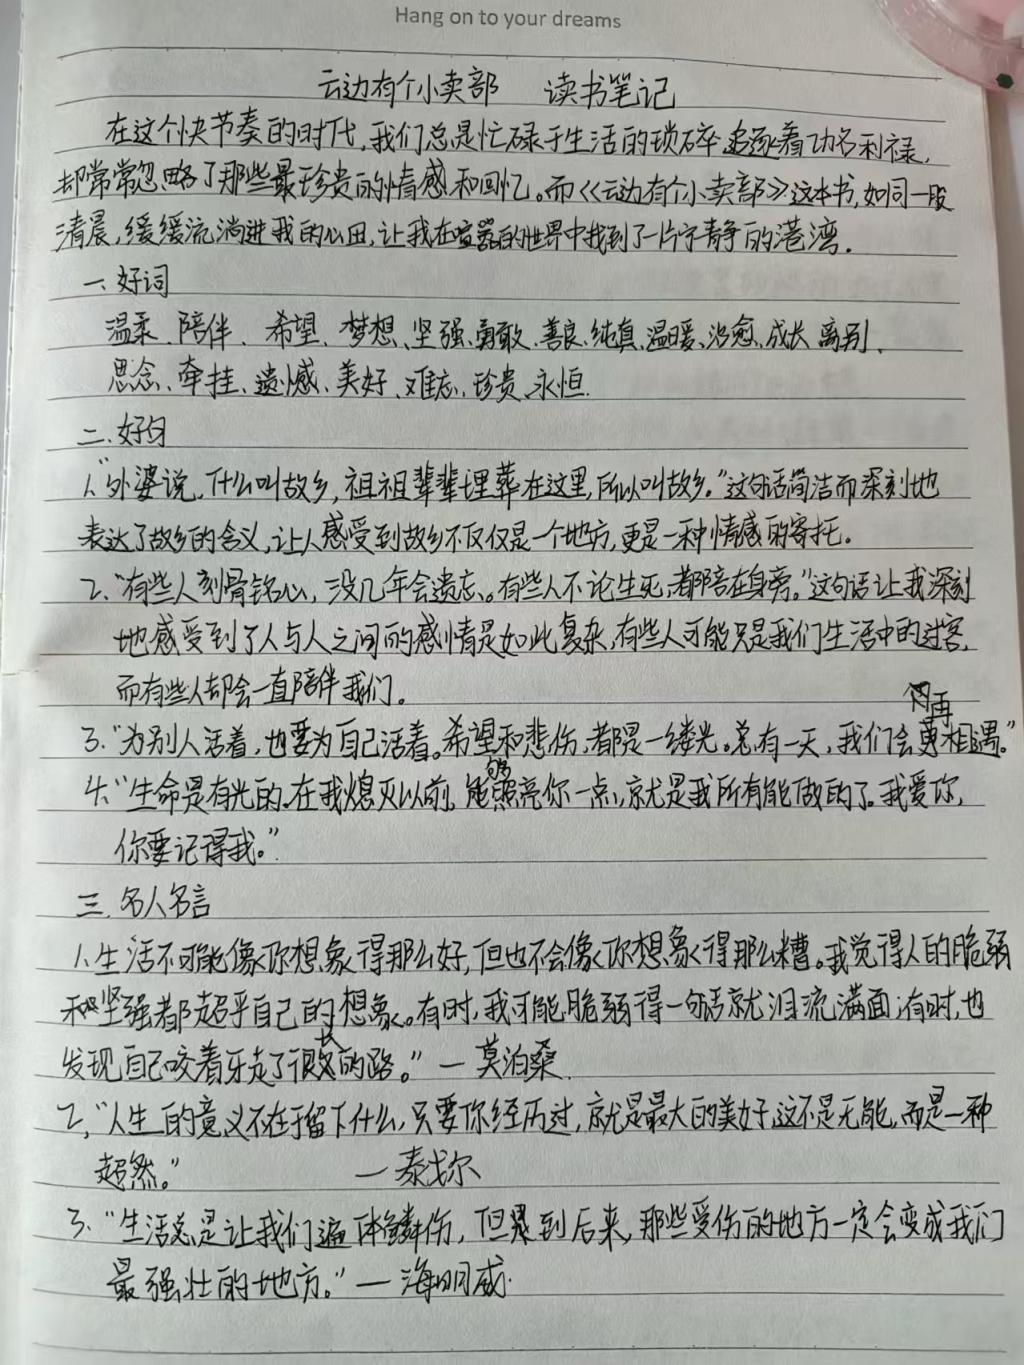 Hang on to your dreams
云边有个小卖部 读书笔记
在这个快节奏的时代,我们总是忙碌于生活的琐碎,追逐着功名利禄,
却常常忽略了那些最珍贵的情感和回忆。而《云边有个小卖部》这本书,如同一股
清晨,缓缓流淌进我的心田,让我在喧嚣的世界中找到了一片宁静的港湾.
一、好词
温柔、陪伴、希望、梦想、坚强、勇敢、善良、纯真、温暖、治愈、成长、离别、
思念、牵挂、遗憾、美好、难忘、珍贵、永恒.
二、好句
1、“外婆说,什么叫故乡,祖祖辈辈埋葬在这里,所以叫故乡。”这句话简洁而深刻地
表达了故乡的含义,让人感受到故乡不仅仅是一个地方,更是一种情感的寄托。
2、“有些人刻骨铭心,没几年会遗忘。有些人不论生死,都陪在身旁。”这句话让我深刻
地感受到了人与人之间的感情是如此复杂,有些人可能只是我们生活中的过客,
而有些人却会一直陪伴我们。
3、“为别人活着,也要为自己活着。希望和悲伤,都是一缕光。总有一天,我们会再相遇。”
4、“生命是有光的。在我熄灭以前,能够照亮你一点,就是我所有能做的了。我爱你,
你要记得我。”
三、名人名言
1、生活不可能像你想象得那么好,但也不会像你想象得那么糟。我觉得人的脆弱
和坚强都超乎自己的想象。有时,我可能脆弱得一句话就泪流满面;有时,也
发现自己咬着牙走了很长的路。”—莫泊桑
2、“人生的意义不在于留下什么,只要你经历过,就是最大的美好,这不是无能,而是一种
超然。” —泰戈尔
3、“生活总是让我们遍体鳞伤,但是到后来,那些受伤的地方一定会变成我们
最强壮的地方。”—海明威.